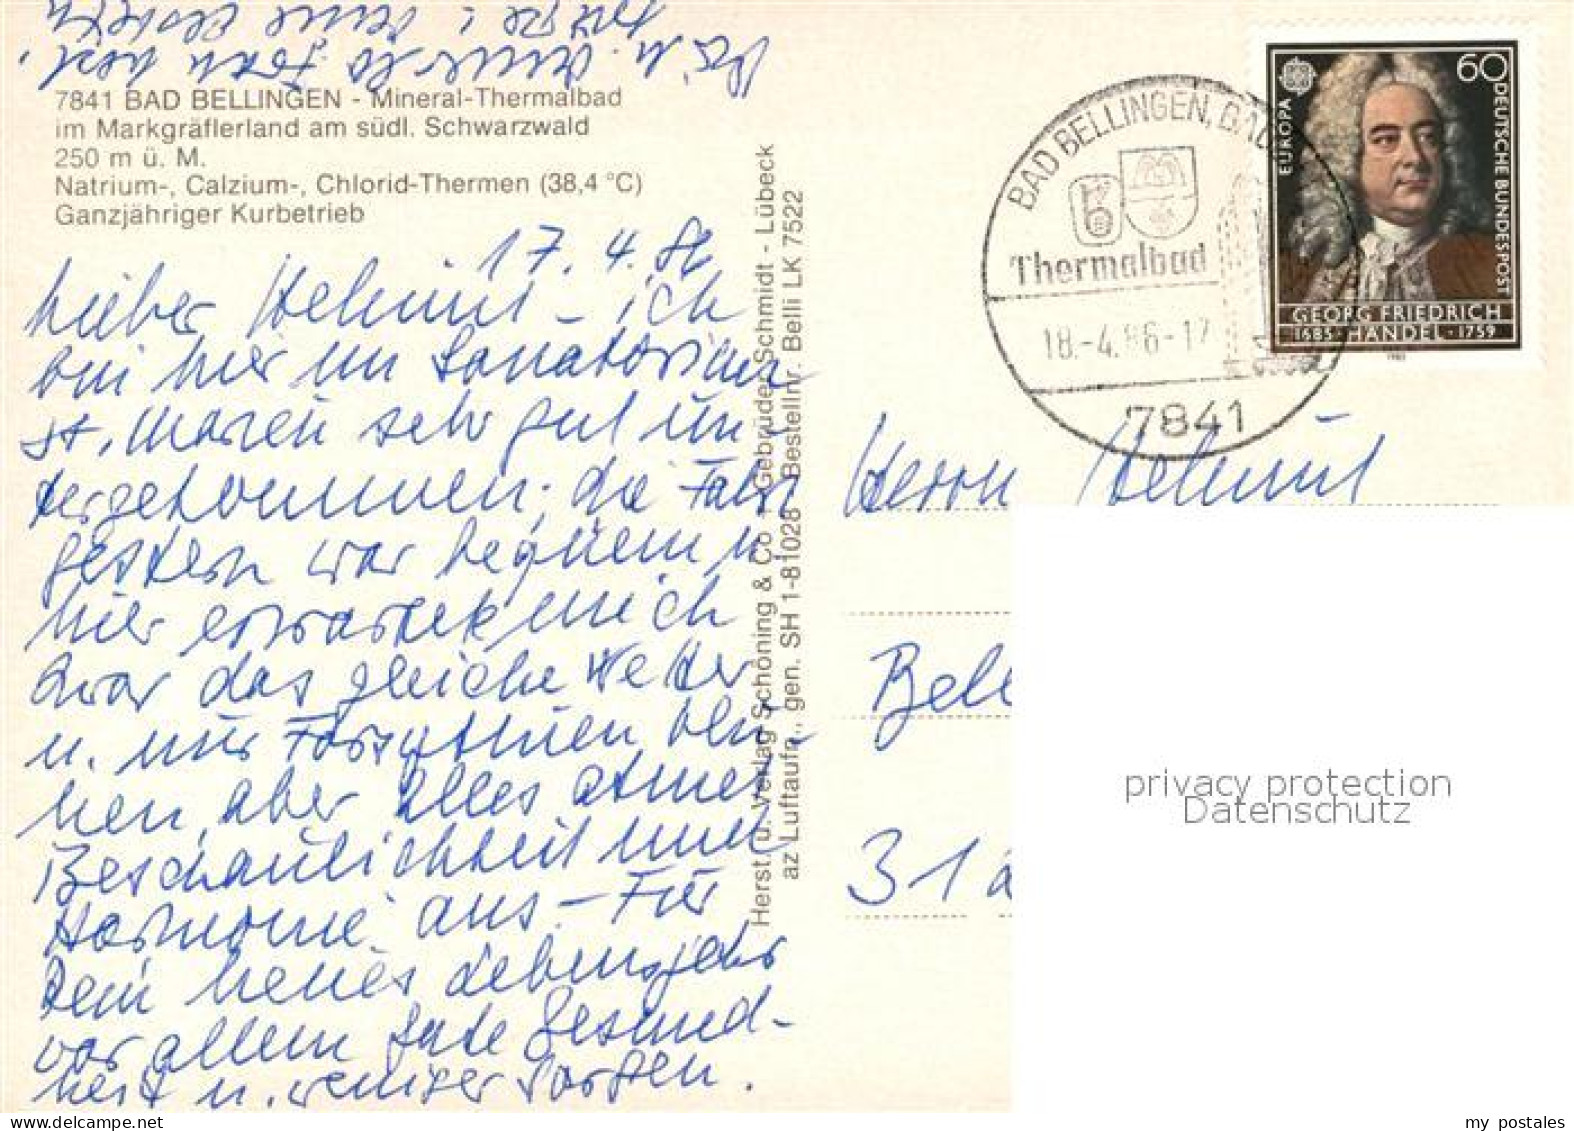 7841 BAD BELLINGEN - Mineral-Thermalbad
im Markgräflerland am südl. Schwarzwald
250 m ü. M.
Natrium-, Calzium-, Chlorid-Thermen (38,4 °C)
Ganzjähriger Kurbetrieb
17. 4. 86
Lieber Helmut - ich
bin hier im Sanatorium
St. Marien sehr gut un-
tergekommen; die Fahrt
gestern war bequem u.
hier erwartete mich
zwar das gleiche Wetter
u. nur Forsythien blü-
hen, aber alles atmet
Beschaulichkeit und
Harmonie aus - Für
Dein neues Lebensjahr
vor allem gute Gesund-
heit u. weniger Sorgen.
Herst. u. Verlag Schöning & Co + Gebrüder Schmidt - Lübeck
az Luftaufn., gen. SH 1-81028 Bestellnr. Belli LK 7522
BAD BELLINGEN,
Thermalbad
18.-4.86-17
7841
60
EUROPA
DEUTSCHE BUNDESPOST
GEORG FRIEDRICH
1685 · HÄNDEL · 1759
Herrn Helmut
31
privacy protection
Datenschutz
my postales
delcampe.net